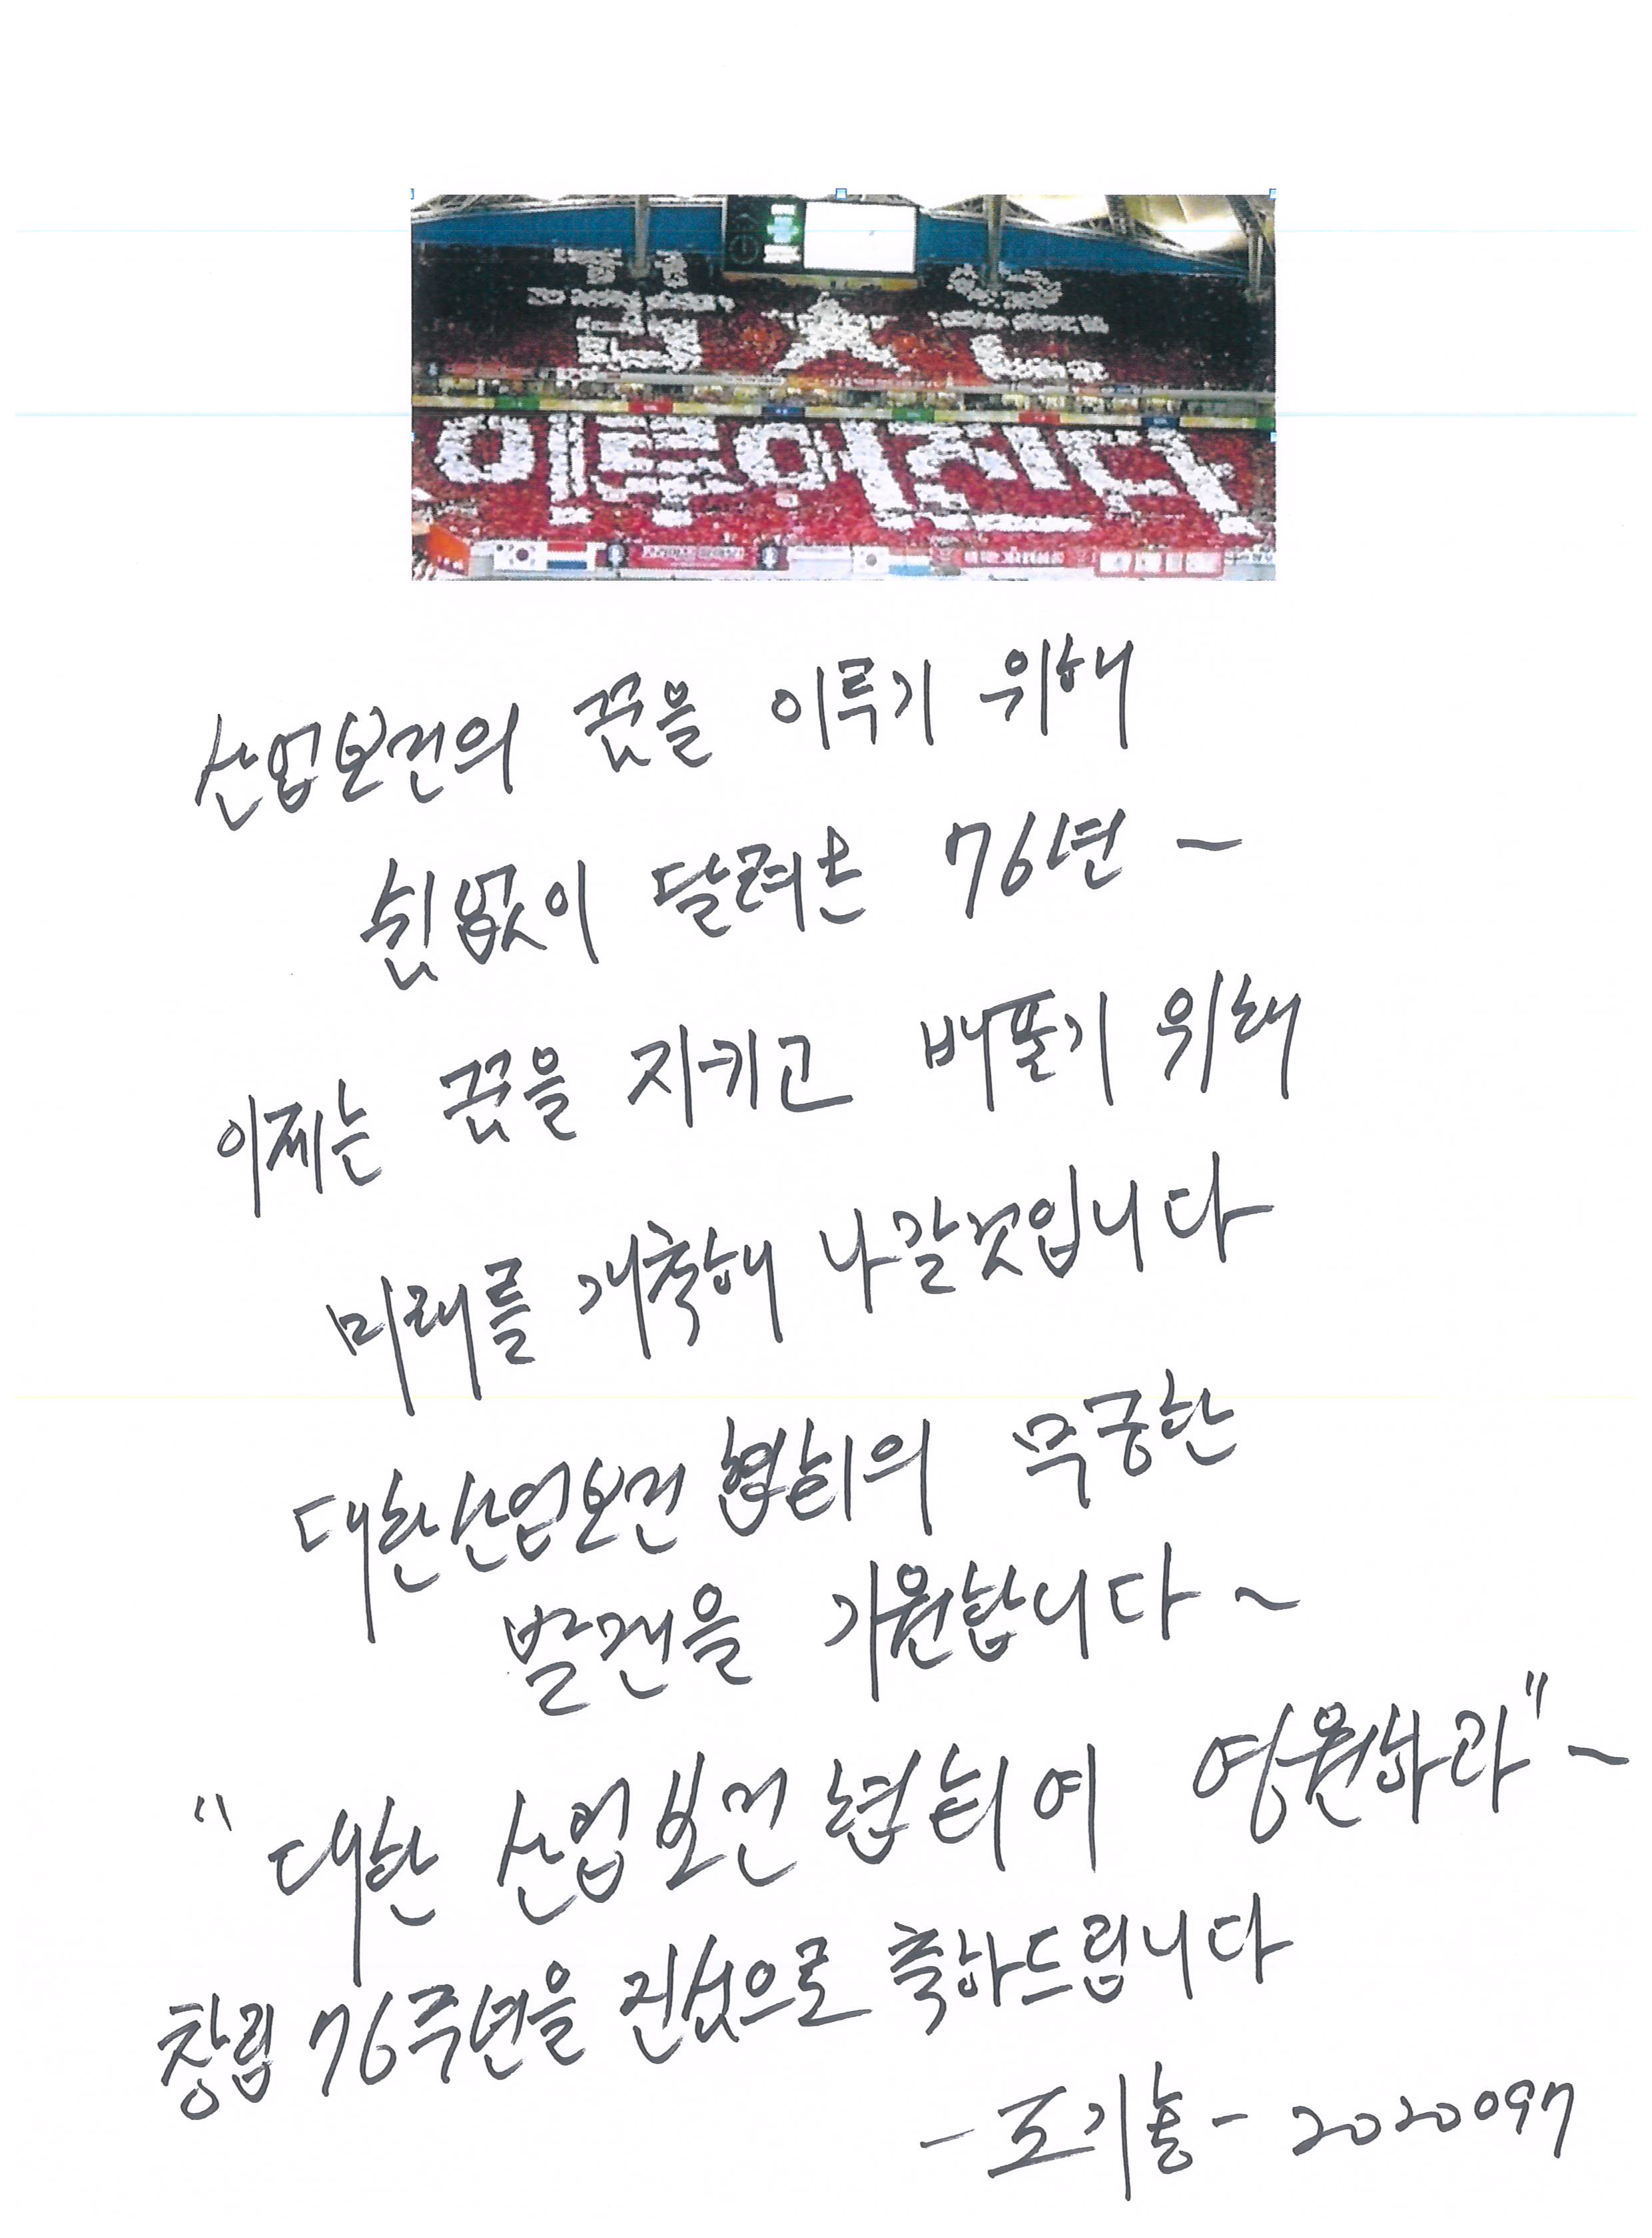 꿈★은
이루어진다
산업보건의 꿈을 이루기 위해
쉼없이 달려온 76년~
이제는 꿈을 지키고 베풀기 위해
미래를 개척해 나갈것입니다
대한산업보건협회의 무궁한
발전을 기원합니다~
"대한산업보건협회여 영원하라"~
창립 76주년을 진심으로 축하드립니다
-조기홍- 2020097